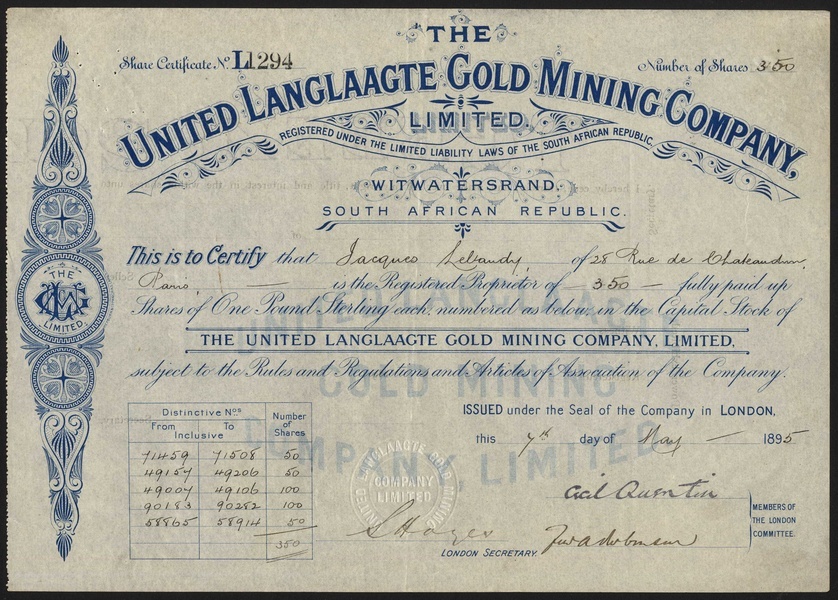 Share Certificate No. L1294
Number of Shares 350
THE
UNITED LANGLAAGTE GOLD MINING COMPANY,
LIMITED.
REGISTERED UNDER THE LIMITED LIABILITY LAWS OF THE SOUTH AFRICAN REPUBLIC.
WITWATERSRAND,
SOUTH AFRICAN REPUBLIC.
This is to Certify that Jacques Lebaudy of 28 Rue de Chateaudun,
Paris, — is the Registered Proprietor of — 350 — fully paid up
Shares of One Pound Sterling each, numbered as below, in the Capital Stock of
THE UNITED LANGLAAGTE GOLD MINING COMPANY, LIMITED,
subject to the Rules and Regulations and Articles of Association of the Company.
THE
LIMITED.
ISSUED under the Seal of the Company in LONDON,
this 7th day of May — 1895
Distinctive Nos.
From To
Inclusive
Number of Shares
71459 71508 50
49157 49206 50
49007 49106 100
90183 90282 100
58865 58914 50
350
UNITED LANGLAAGTE GOLD MINING
COMPANY
LIMITED
UNITED LANGLAAGTE
GOLD MINING
COMPANY, LIMITED
Cecil Quentin
LONDON SECRETARY.
MEMBERS OF
THE LONDON
COMMITTEE.